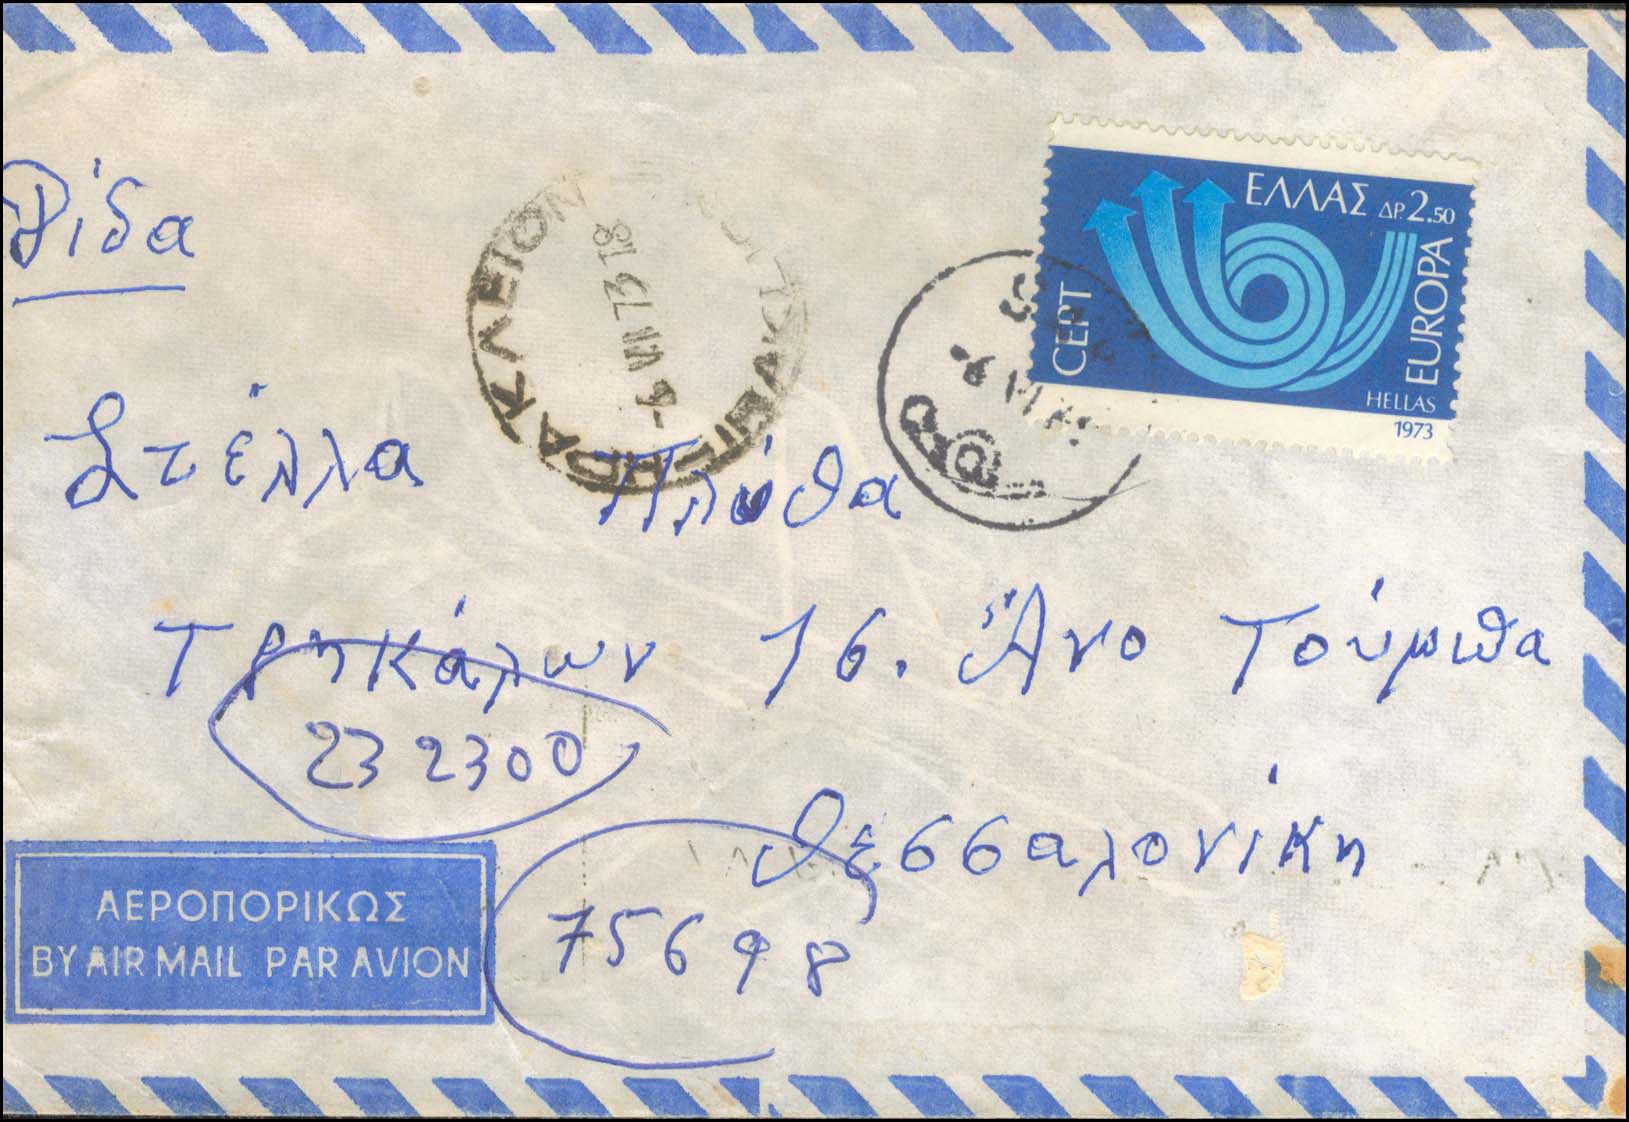 ΕΛΛΑΣ ΔΡ 2.50
CEPT
EUROPA
HELLAS
1973
ΗΡΑΚΛΕΙΟΝ
VII 73 18
Στέλλα Πλύθα
Τρηκάλων 76. Άνο Τούμπα
232300
Θεσσαλονίκη
75698
ΑΕΡΟΠΟΡΙΚΩΣ
BY AIR MAIL PAR AVION